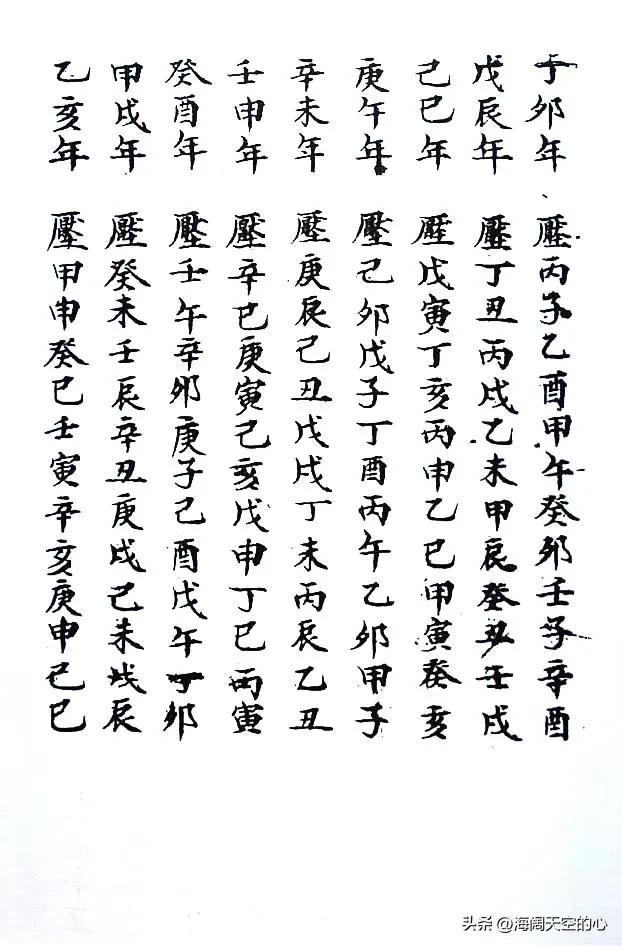 丁卯年 壓丙子乙酉甲午癸卯壬子辛酉
戊辰年 壓丁丑丙戌乙未甲辰癸丑壬戌
己巳年 壓戊寅丁亥丙申乙巳甲寅癸亥
庚午年 壓己卯戊子丁酉丙午乙卯甲子
辛未年 壓庚辰己丑戊戌丁未丙辰乙丑
壬申年 壓辛巳庚寅己亥戊申丁巳丙寅
癸酉年 壓壬午辛卯庚子己酉戊午丁卯
甲戌年 壓癸未壬辰辛丑庚戌己未戊辰
乙亥年 壓甲申癸巳壬寅辛亥庚申己巳
头条 @海阔天空的心